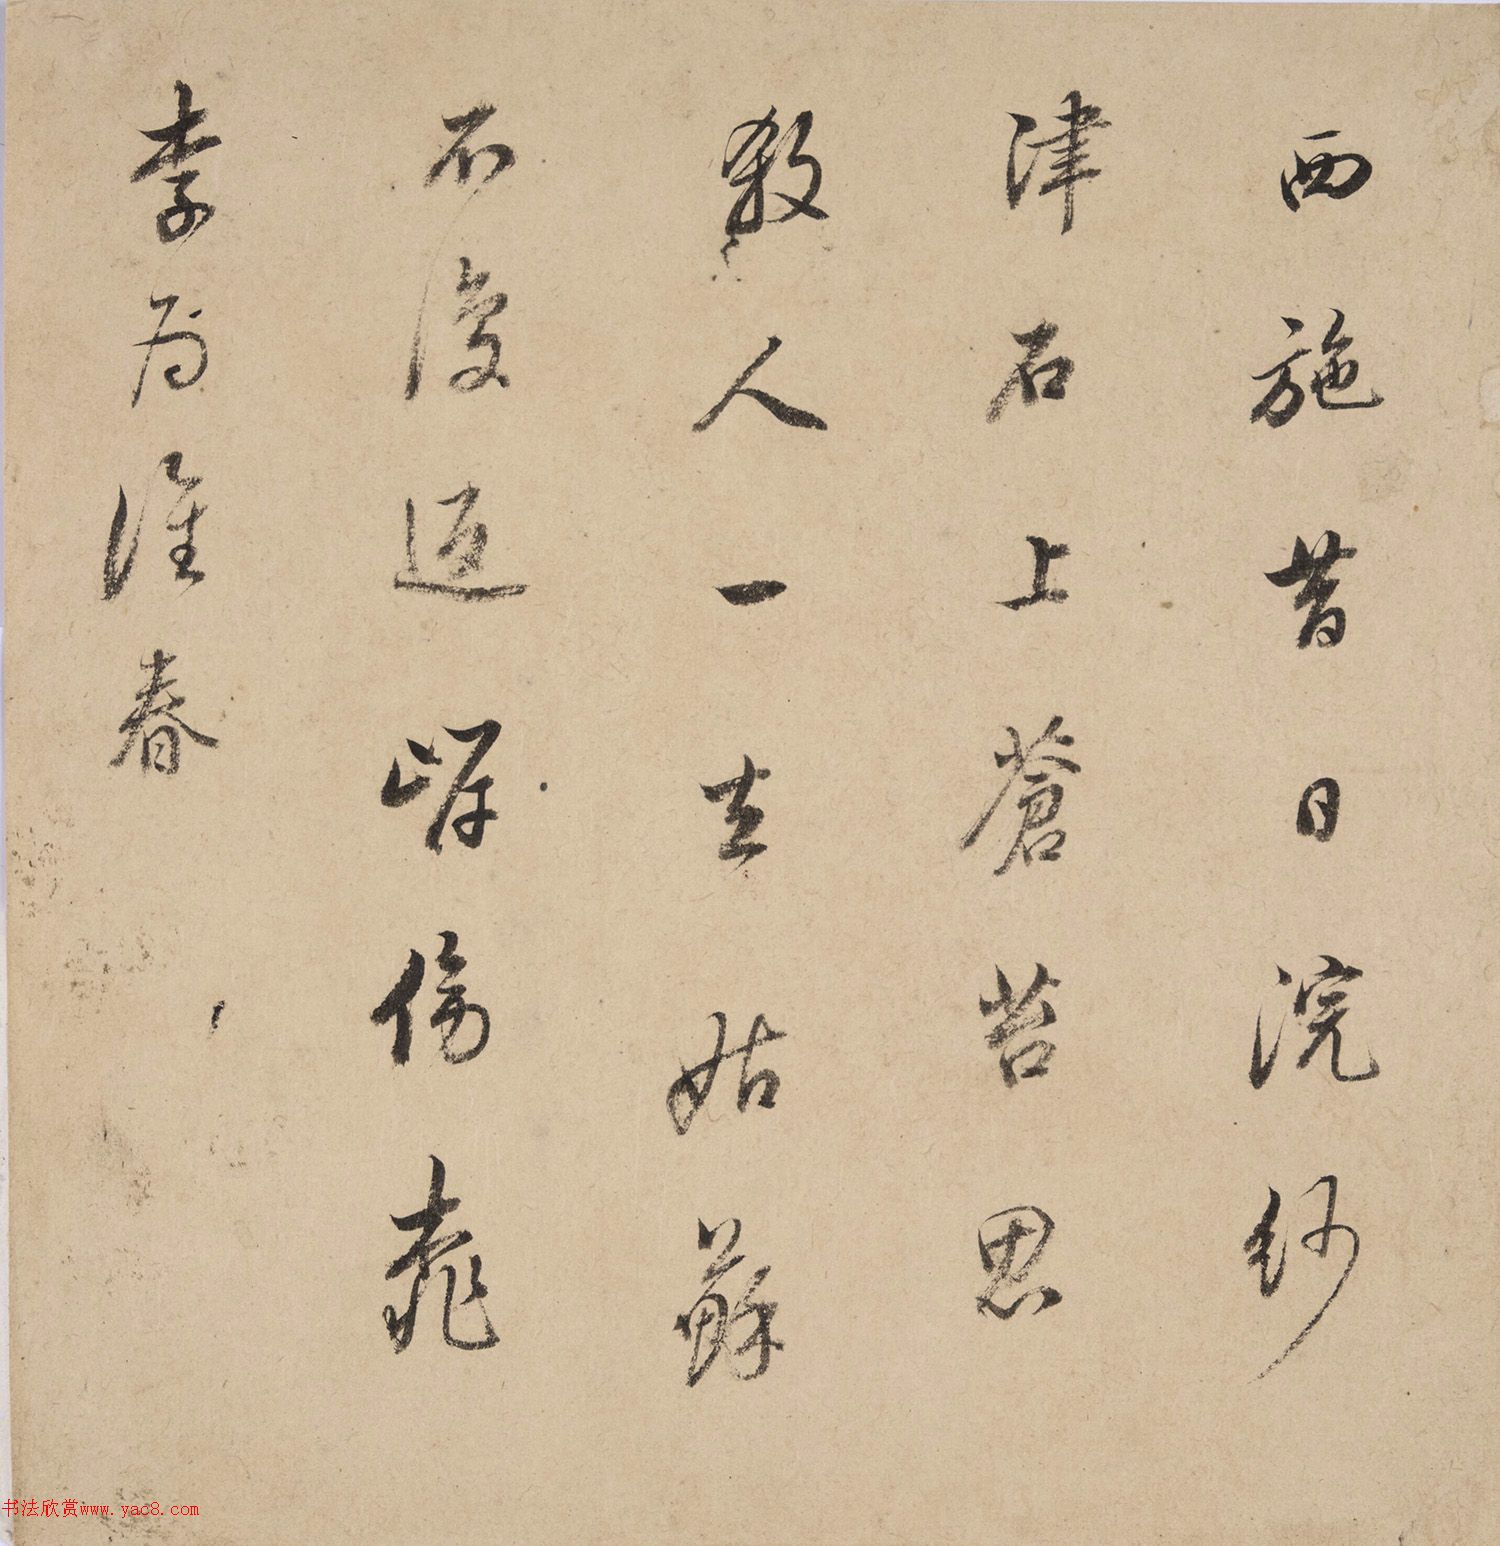 西施昔日浣紗
津石上蒼苔思
殺人一去姑蘇
不復返岸傍桃
李為誰春
书法欣赏www.yac8.com